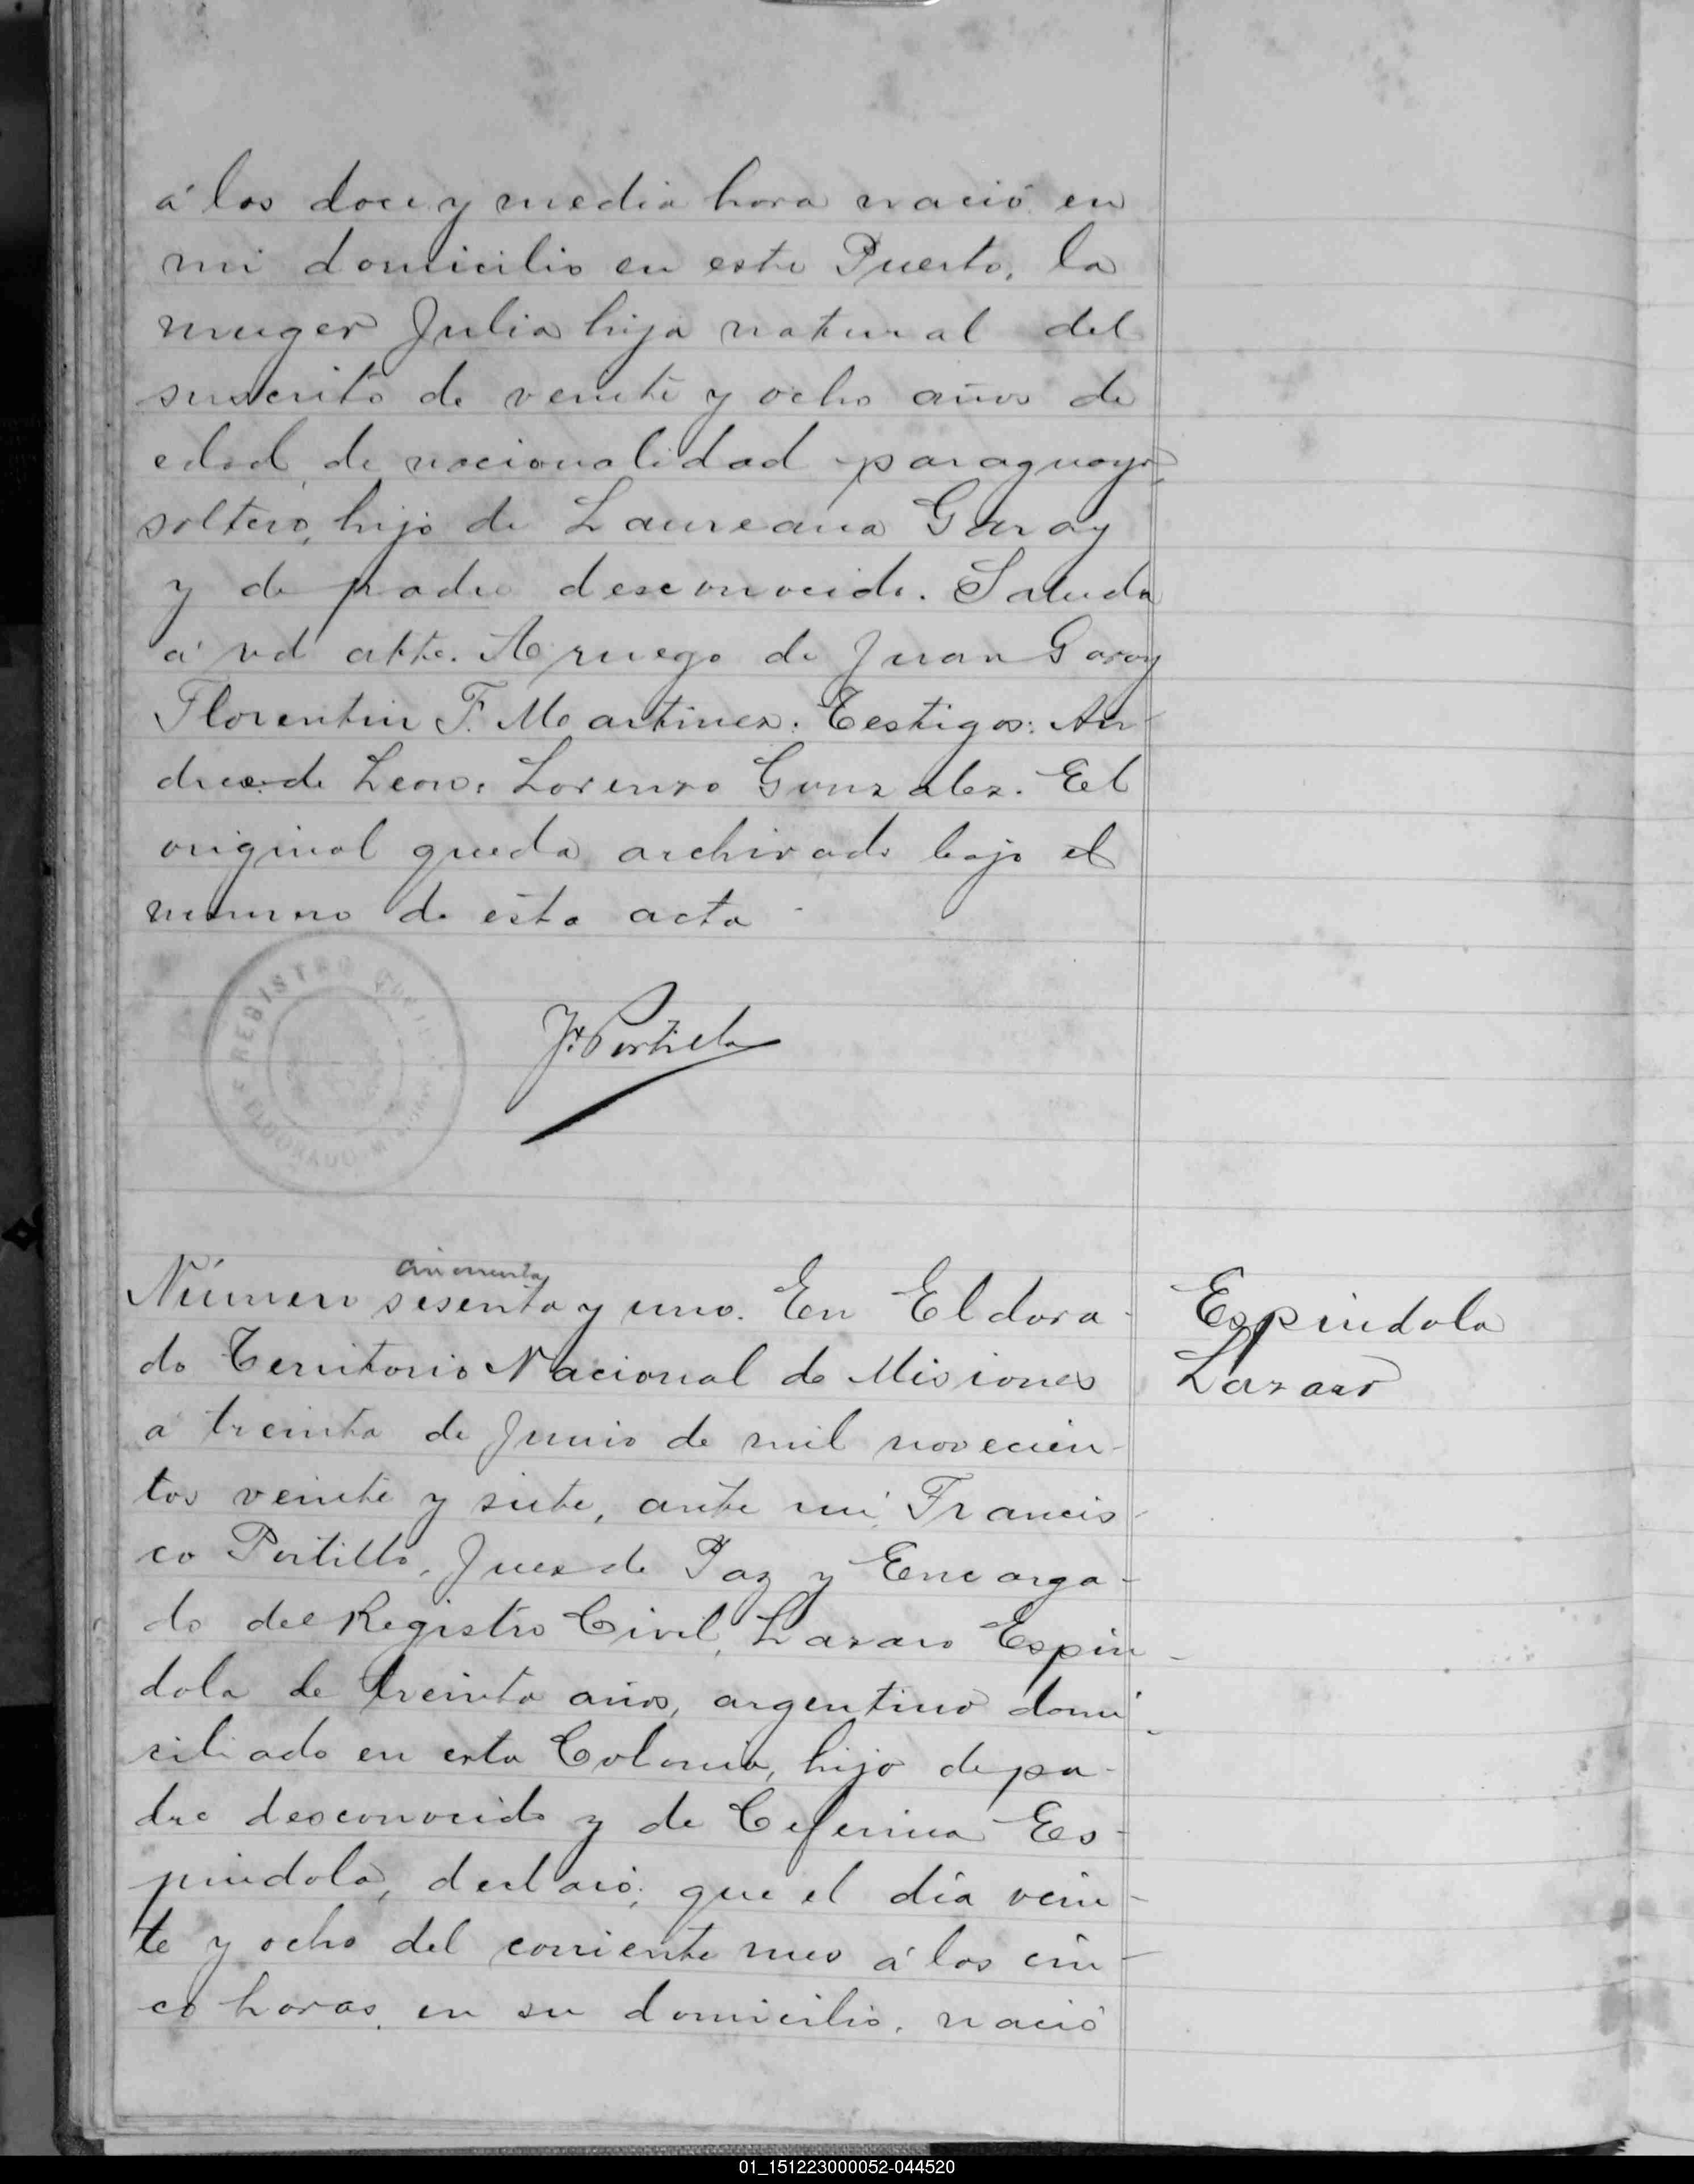 á las doce y media hora nació en
mi domicilio en este Puerto, la
muger Julia hija natural del
suscrito de veinte y ocho años de
edad, de nacionalidad paraguayo,
soltero, hijo de Laureana Garay
y de padre desconocido. Saluda
á vd atte. A ruego de Juan Garay
Florentin F. Martinez. Testigos: An-
dres de Leon. Lorenzo Gonzalez. El
original queda archivado bajo el
numero de esta acta -
REGISTRO CIVIL
ELDORADO
Fr. Portillo
cincuenta
Número sesenta y uno. En Eldora-
do Territorio Nacional de Misiones
a treinta de Junio de mil novecien-
tos veinte y siete, ante mi Francis-
co Portillo, Juez de Paz y Encarga-
do del Registro Civil, Lazaro Espin-
dola de treinta años, argentino domi-
ciliado en esta Colonia, hijo de pa-
dre desconocido y de Ceferina Es-
pindola, declaró; que el día vein-
te y ocho del corriente mes á las cin-
co horas, en su domicilio, nació
Espindola
Lazaro
01_151223000052-044520